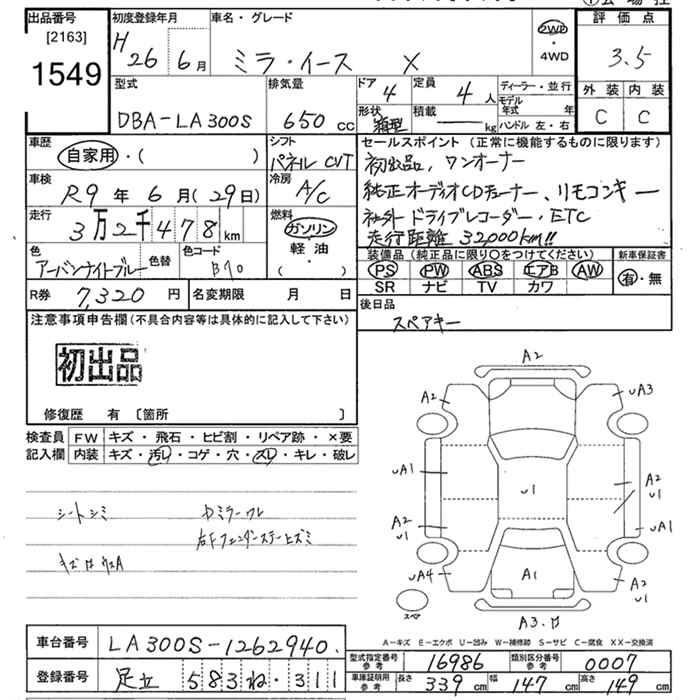 出品番号
[2163]
1549
初度登録年月
H 26 6月
車名・グレード
ミラ・イース X
2WD
・
4WD
評価点
3.5
外装 内装
C C
型式
DBA-LA300S
排気量
650 CC
ドア
4
定員
4人
形状
箱型
積載
kg
ディーラー・並行
モデル年式 年
ハンドル 左・右
車歴
自家用・( )
シフト
パネル CVT
車検
R9年6月(29日)
冷房
A/C
走行
3万2千478km
燃料
ガソリン
軽油
( )
色
アーバンナイトブルー
色替
色コード
B70
R券 7,320円
名変期限 月 日
セールスポイント(正常に機能するものに限ります)
初出品、ワンオーナー
純正オーディオCDチューナー、リモコンキー
社外ドライブレコーダー、ETC
走行距離 32,000km!!
装備品(純正品に限り○をつけてください)
新車保証書
PS PW ABS エアB AW
SR ナビ TV カワ
有・無
後日品
スペアキー
注意事項申告欄(不具合内容等は具体的に記入して下さい)
初出品
修復歴 有 〔箇所 〕
検査員記入欄
FW キズ・飛石・ヒビ割・リペア跡・×要
内装 キズ・汚レ・コゲ・穴・スレ・キレ・破レ
シートシミ
カミラーワレ
右Fフェンダーステーヒズミ
A2
A2
UA3
UA1
U1
A2
U1
A2
U1
UA1
UA4
A1
A2
U1
スペア
A3.
A-キズ E-エクボ U-凹み W-補修跡 S-サビ C-腐食 XX-交換済
車台番号 LA300S-1262940.
登録番号 足立 583 ね・311
型式指定番号 参考 16986
類別区分番号 参考 0007
車庫証明用 参考 長さ 339cm 幅 147cm 高さ 149cm